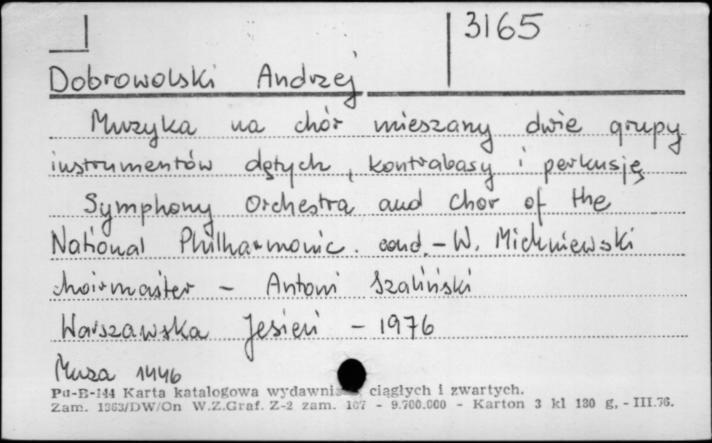 3165
Dobrowolski Andrzej
Muzyka na chór mieszany dwie grupy
instrumentów dętych, kontrabasy i perkusję
Symphony Orchestra and Chor of the
National Philharmonic. cond. - W. Michniewski
choirmaster - Antoni Szaliński
Warszawska Jesień - 1976
Muza 1446
Pu-B-144 Karta katalogowa wydawnic ciągłych i zwartych.
Zam. 1363/DW/On W.Z.Graf. Z-2 zam. 107 - 9.700.000 - Karton 3 kl 180 g. - III.76.